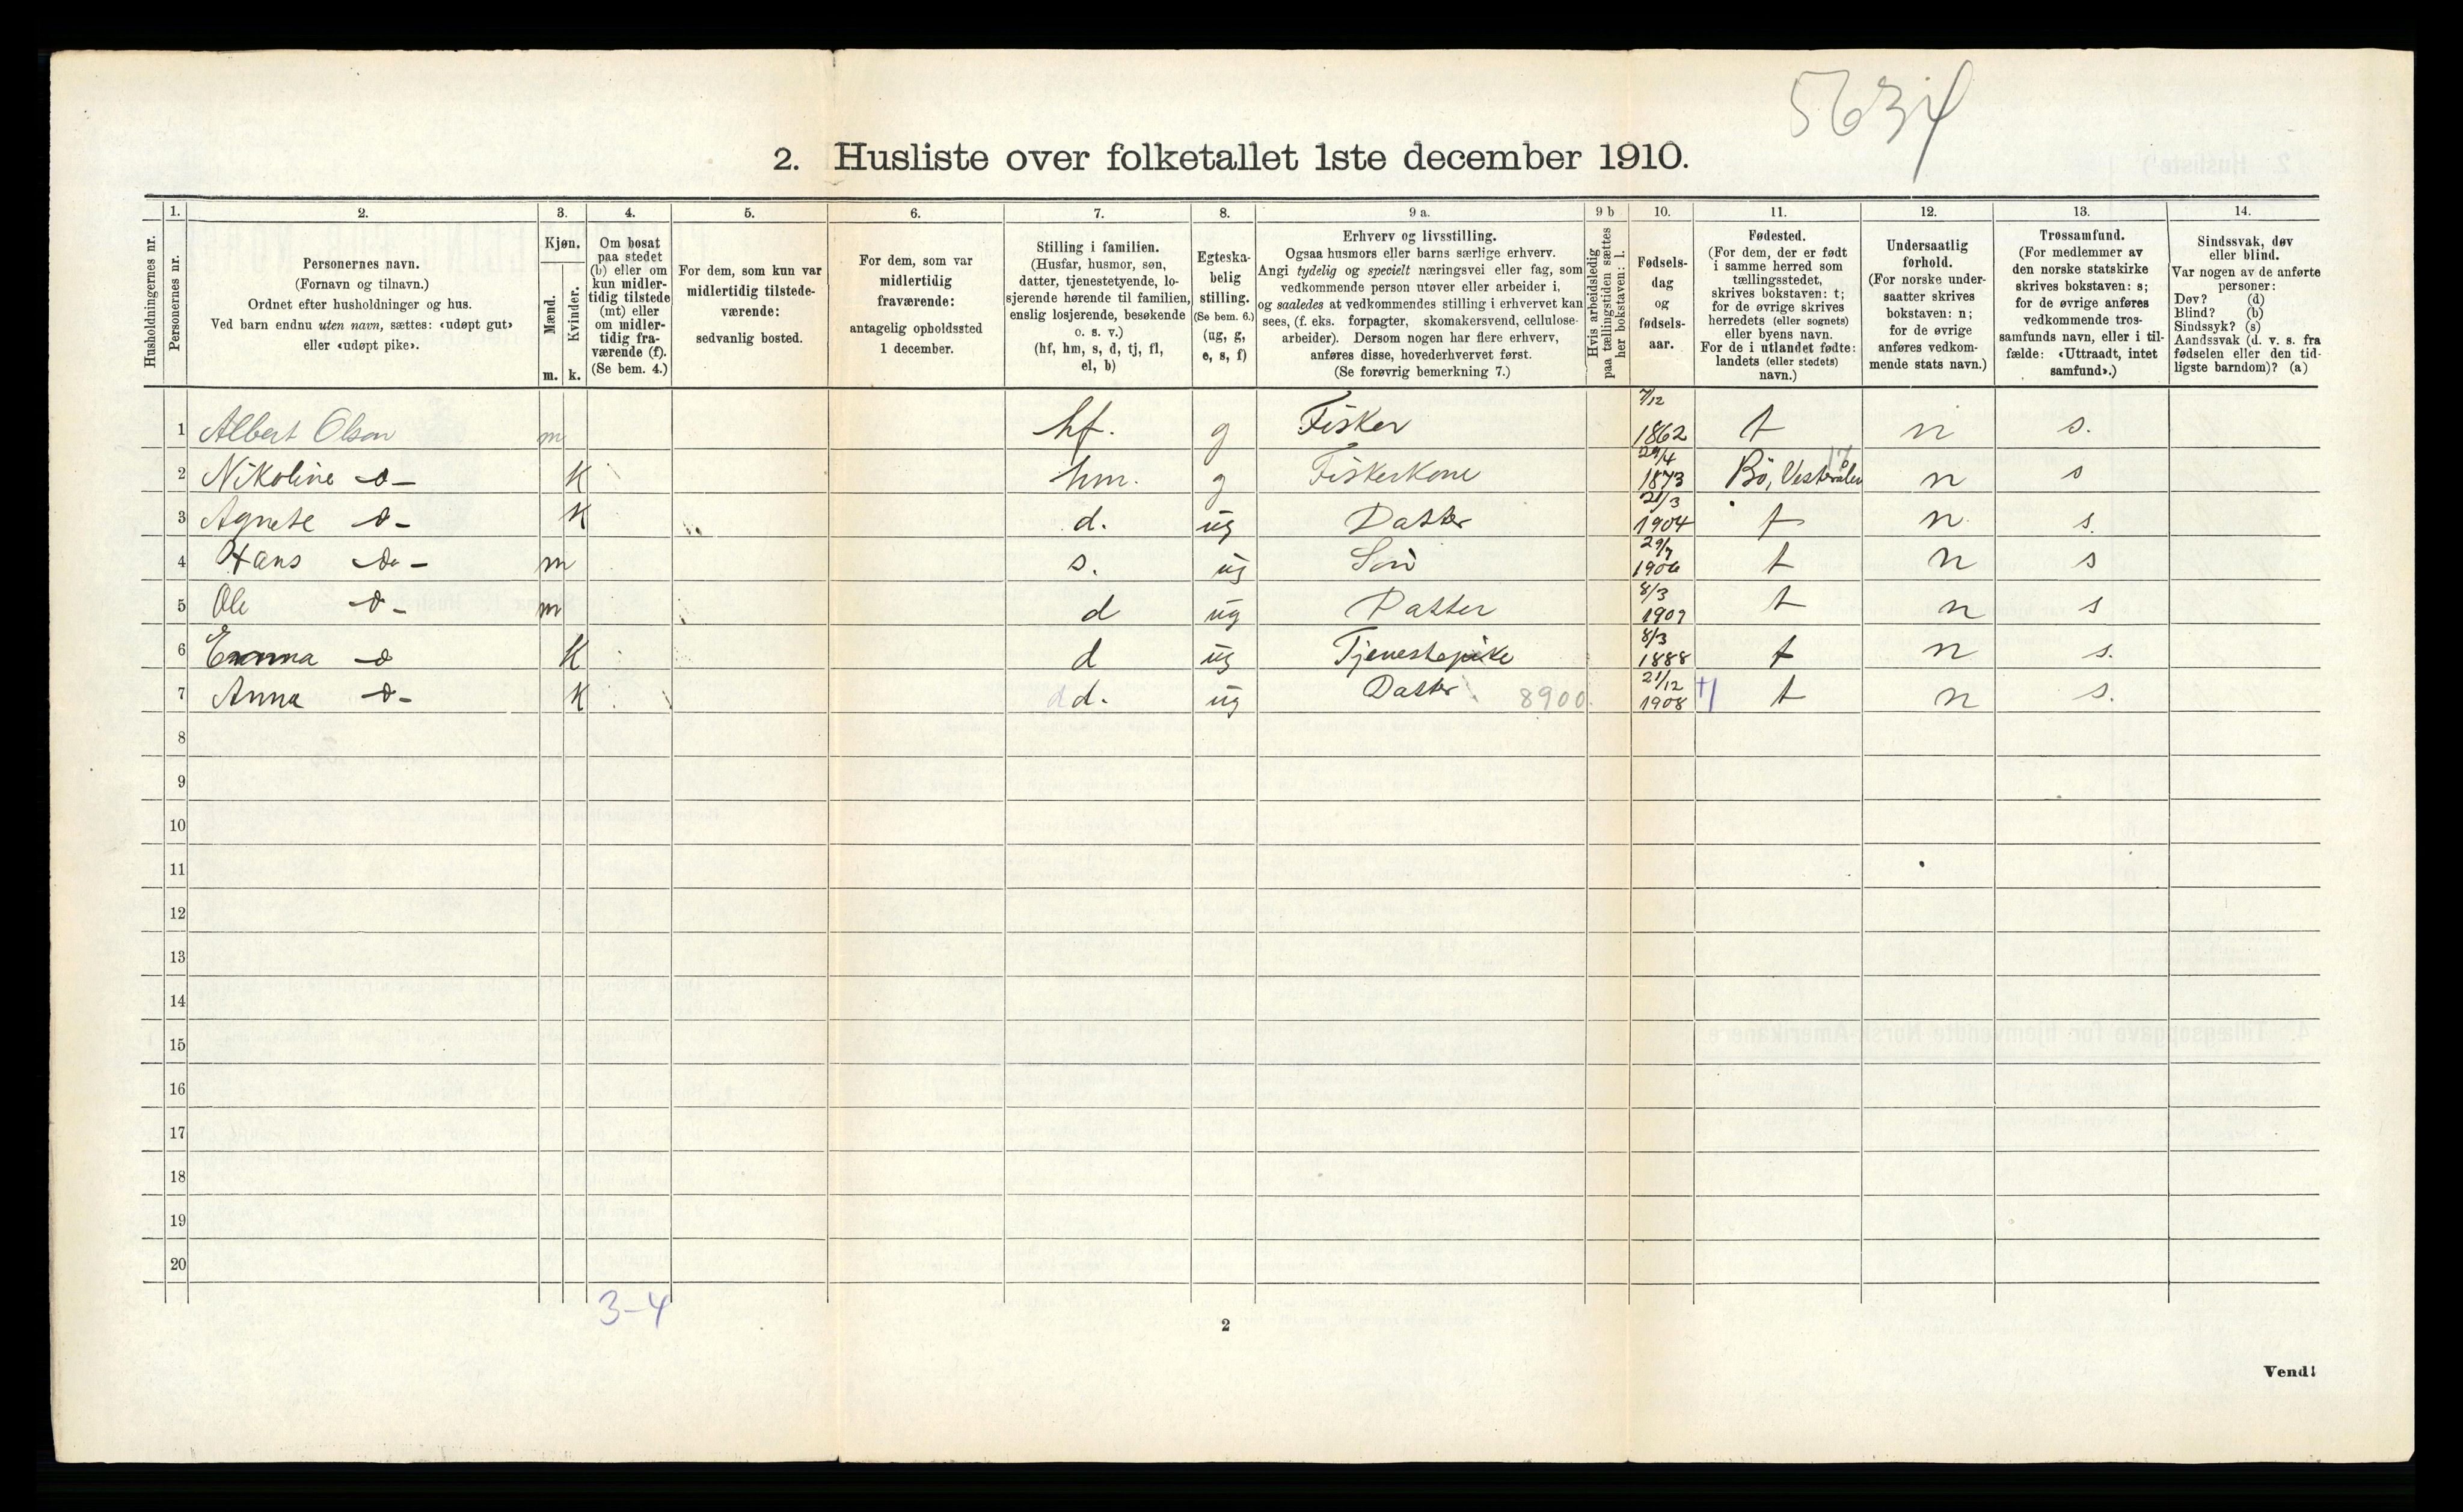 5634
2. Husliste over folketallet 1ste december 1910.
Husholdningernes nr.
1. 2. 3. 4. 5. 6. 7. 8. 9 a. 9 b 10. 11. 12. 13. 14.
Personernes nr.
Personernes navn.
(Fornavn og tilnavn.)
Ordnet efter husholdninger og hus.
Ved barn endnu uten navn, sættes: «udøpt gut»
eller «udøpt pike».
Kjøn.
Mænd.
Kvinder.
m. k.
Om bosat
paa stedet
(b) eller om
kun midler-
tidig tilstede
(mt) eller
om midler-
tidig fra-
værende (f).
(Se bem. 4.)
For dem, som kun var
midlertidig tilstede-
værende:
sedvanlig bosted.
For dem, som var
midlertidig
fraværende:
antagelig opholdssted
1 december.
Stilling i familien.
(Husfar, husmor, søn,
datter, tjenestetyende, lo-
sjerende hørende til familien,
enslig losjerende, besøkende
o. s. v.)
(hf, hm, s, d, tj, fl,
el, b)
Egteska-
belig
stilling.
(Se bem. 6.)
(ug, g,
e, s, f)
Erhverv og livsstilling.
Ogsaa husmors eller barns særlige erhverv.
Angi tydelig og specielt næringsvei eller fag, som
vedkommende person utøver eller arbeider i,
og saaledes at vedkommendes stilling i erhvervet kan
sees, (f. eks. forpagter, skomakersvend, cellulose-
arbeider). Dersom nogen har flere erhverv,
anføres disse, hovederhvervet først.
(Se forøvrig bemerkning 7.)
Hvis arbeidsledig
paa tællingstiden sættes
her bokstaven: l.
Fødsels-
dag
og
fødsels-
aar.
Fødested.
(For dem, der er født
i samme herred som
tællingsstedet,
skrives bokstaven: t;
for de øvrige skrives
herredets (eller sognets)
eller byens navn.
For de i utlandet fødte:
landets (eller stedets)
navn.)
Undersaatlig
forhold.
(For norske under-
saatter skrives
bokstaven: n;
for de øvrige
anføres vedkom-
mende stats navn.)
Trossamfund.
(For medlemmer av
den norske statskirke
skrives bokstaven: s;
for de øvrige anføres
vedkommende tros-
samfunds navn, eller i til-
fælde: «Uttraadt, intet
samfund».)
Sindssvak, døv
eller blind.
Var nogen av de anførte
personer:
Døv? (d)
Blind? (b)
Sindssyk? (s)
Aandssvak (d. v. s. fra
fødselen eller den tid-
ligste barndom)? (a)
1 Albert Olsen m hf. g Fisker 7/12 1862 t n s.
2 Nikoline -d- K hm. g Fiskerkone 29/4 1873 Bö, Vesterålen n s
3 Agnete -d- K d. ug Datter 21/3 1904 t n s.
4 Hans -do- m s. ug Sön 29/7 1906 t n s
5 Ole -d- m d ug Datter 8/3 1907 t n s
6 Emma -d K d ug Tjenestepike 8/3 1888 t n s.
7 Anna -d- K d d. ug Datter 8900 21/12 1908 t n s.
8
9
10
11
12
13
14
15
16
17
18
19
20
3-4
2
Vend!